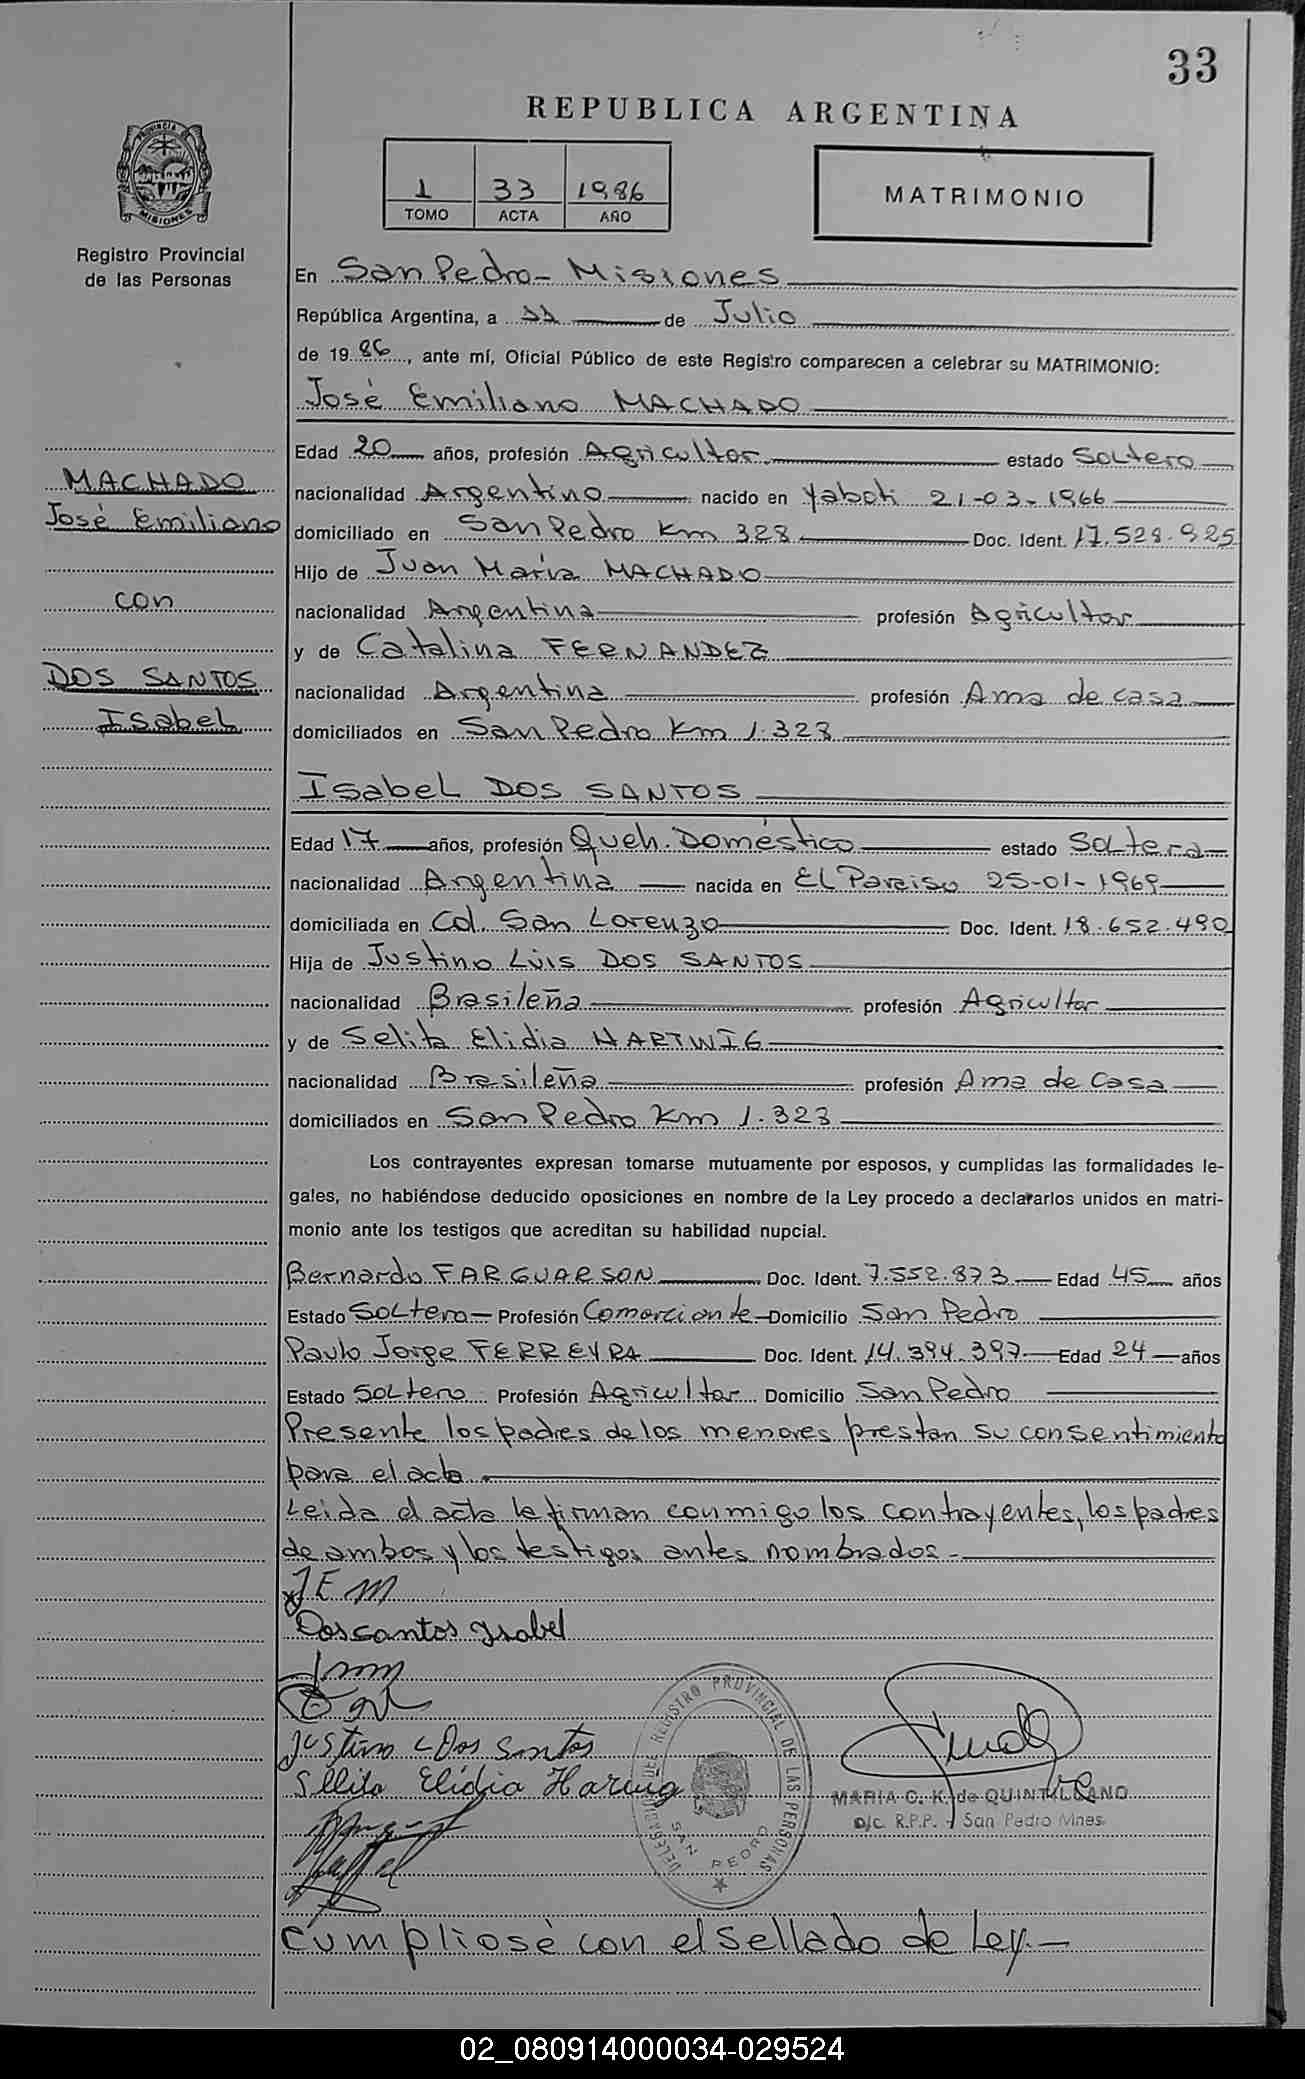 33
REPUBLICA ARGENTINA
PROVINCIA DE
MISIONES
1 33 1986
TOMO ACTA AÑO
MATRIMONIO
Registro Provincial
de las Personas
En San Pedro - Misiones
República Argentina, a 11 de Julio
de 1986, ante mí, Oficial Público de este Registro comparecen a celebrar su MATRIMONIO:
José Emiliano MACHADO
Edad 20 años, profesión Agricultor estado Soltero
MACHADO
nacionalidad Argentino nacido en Yaboti 21-03-1966
José Emiliano
domiciliado en San Pedro Km 328 Doc. Ident. 17.528.925
Hijo de Juan María MACHADO
con
nacionalidad Argentina profesión Agricultor
y de Catalina FERNANDEZ
DOS SANTOS
nacionalidad Argentina profesión Ama de casa
Isabel
domiciliados en San Pedro Km 1.323
Isabel DOS SANTOS
Edad 17 años, profesión Queh. Doméstico estado Soltera
nacionalidad Argentina nacida en El Paraiso 25-01-1969
domiciliada en Col. San Lorenzo Doc. Ident. 18.652.490
Hija de Justino Luis DOS SANTOS
nacionalidad Brasileña profesión Agricultor
y de Selita Elidia HARTWIG
nacionalidad Brasileña profesión Ama de Casa
domiciliados en San Pedro Km 1.323
Los contrayentes expresan tomarse mutuamente por esposos, y cumplidas las formalidades le-
gales, no habiéndose deducido oposiciones en nombre de la Ley procedo a declararlos unidos en matri-
monio ante los testigos que acreditan su habilidad nupcial.
Bernardo FARGUARSON Doc. Ident. 7.552.873 Edad 45 años
Estado Soltero Profesión Comerciante Domicilio San Pedro
Paulo Jorge FERREYRA Doc. Ident. 14.394.397 Edad 24 años
Estado Soltero Profesión Agricultor Domicilio San Pedro
Presente los padres de los menores prestan su consentimiento
para el acto
Leida el acta la firman conmigo los contrayentes, los padres
de ambos y los testigos antes nombrados.-
JEM
Doscantos Ysabel
Justino L Dos Santos
Sellita Elídia Harwig
DELEGACION DEL REGISTRO PROVINCIAL DE LAS PERSONAS
SAN PEDRO
MARIA C. K. de QUINTILLANO
D/c. R.P.P. - San Pedro Mnes.
Cumpliose con el sellado de Ley.-
02_080914000034-029524